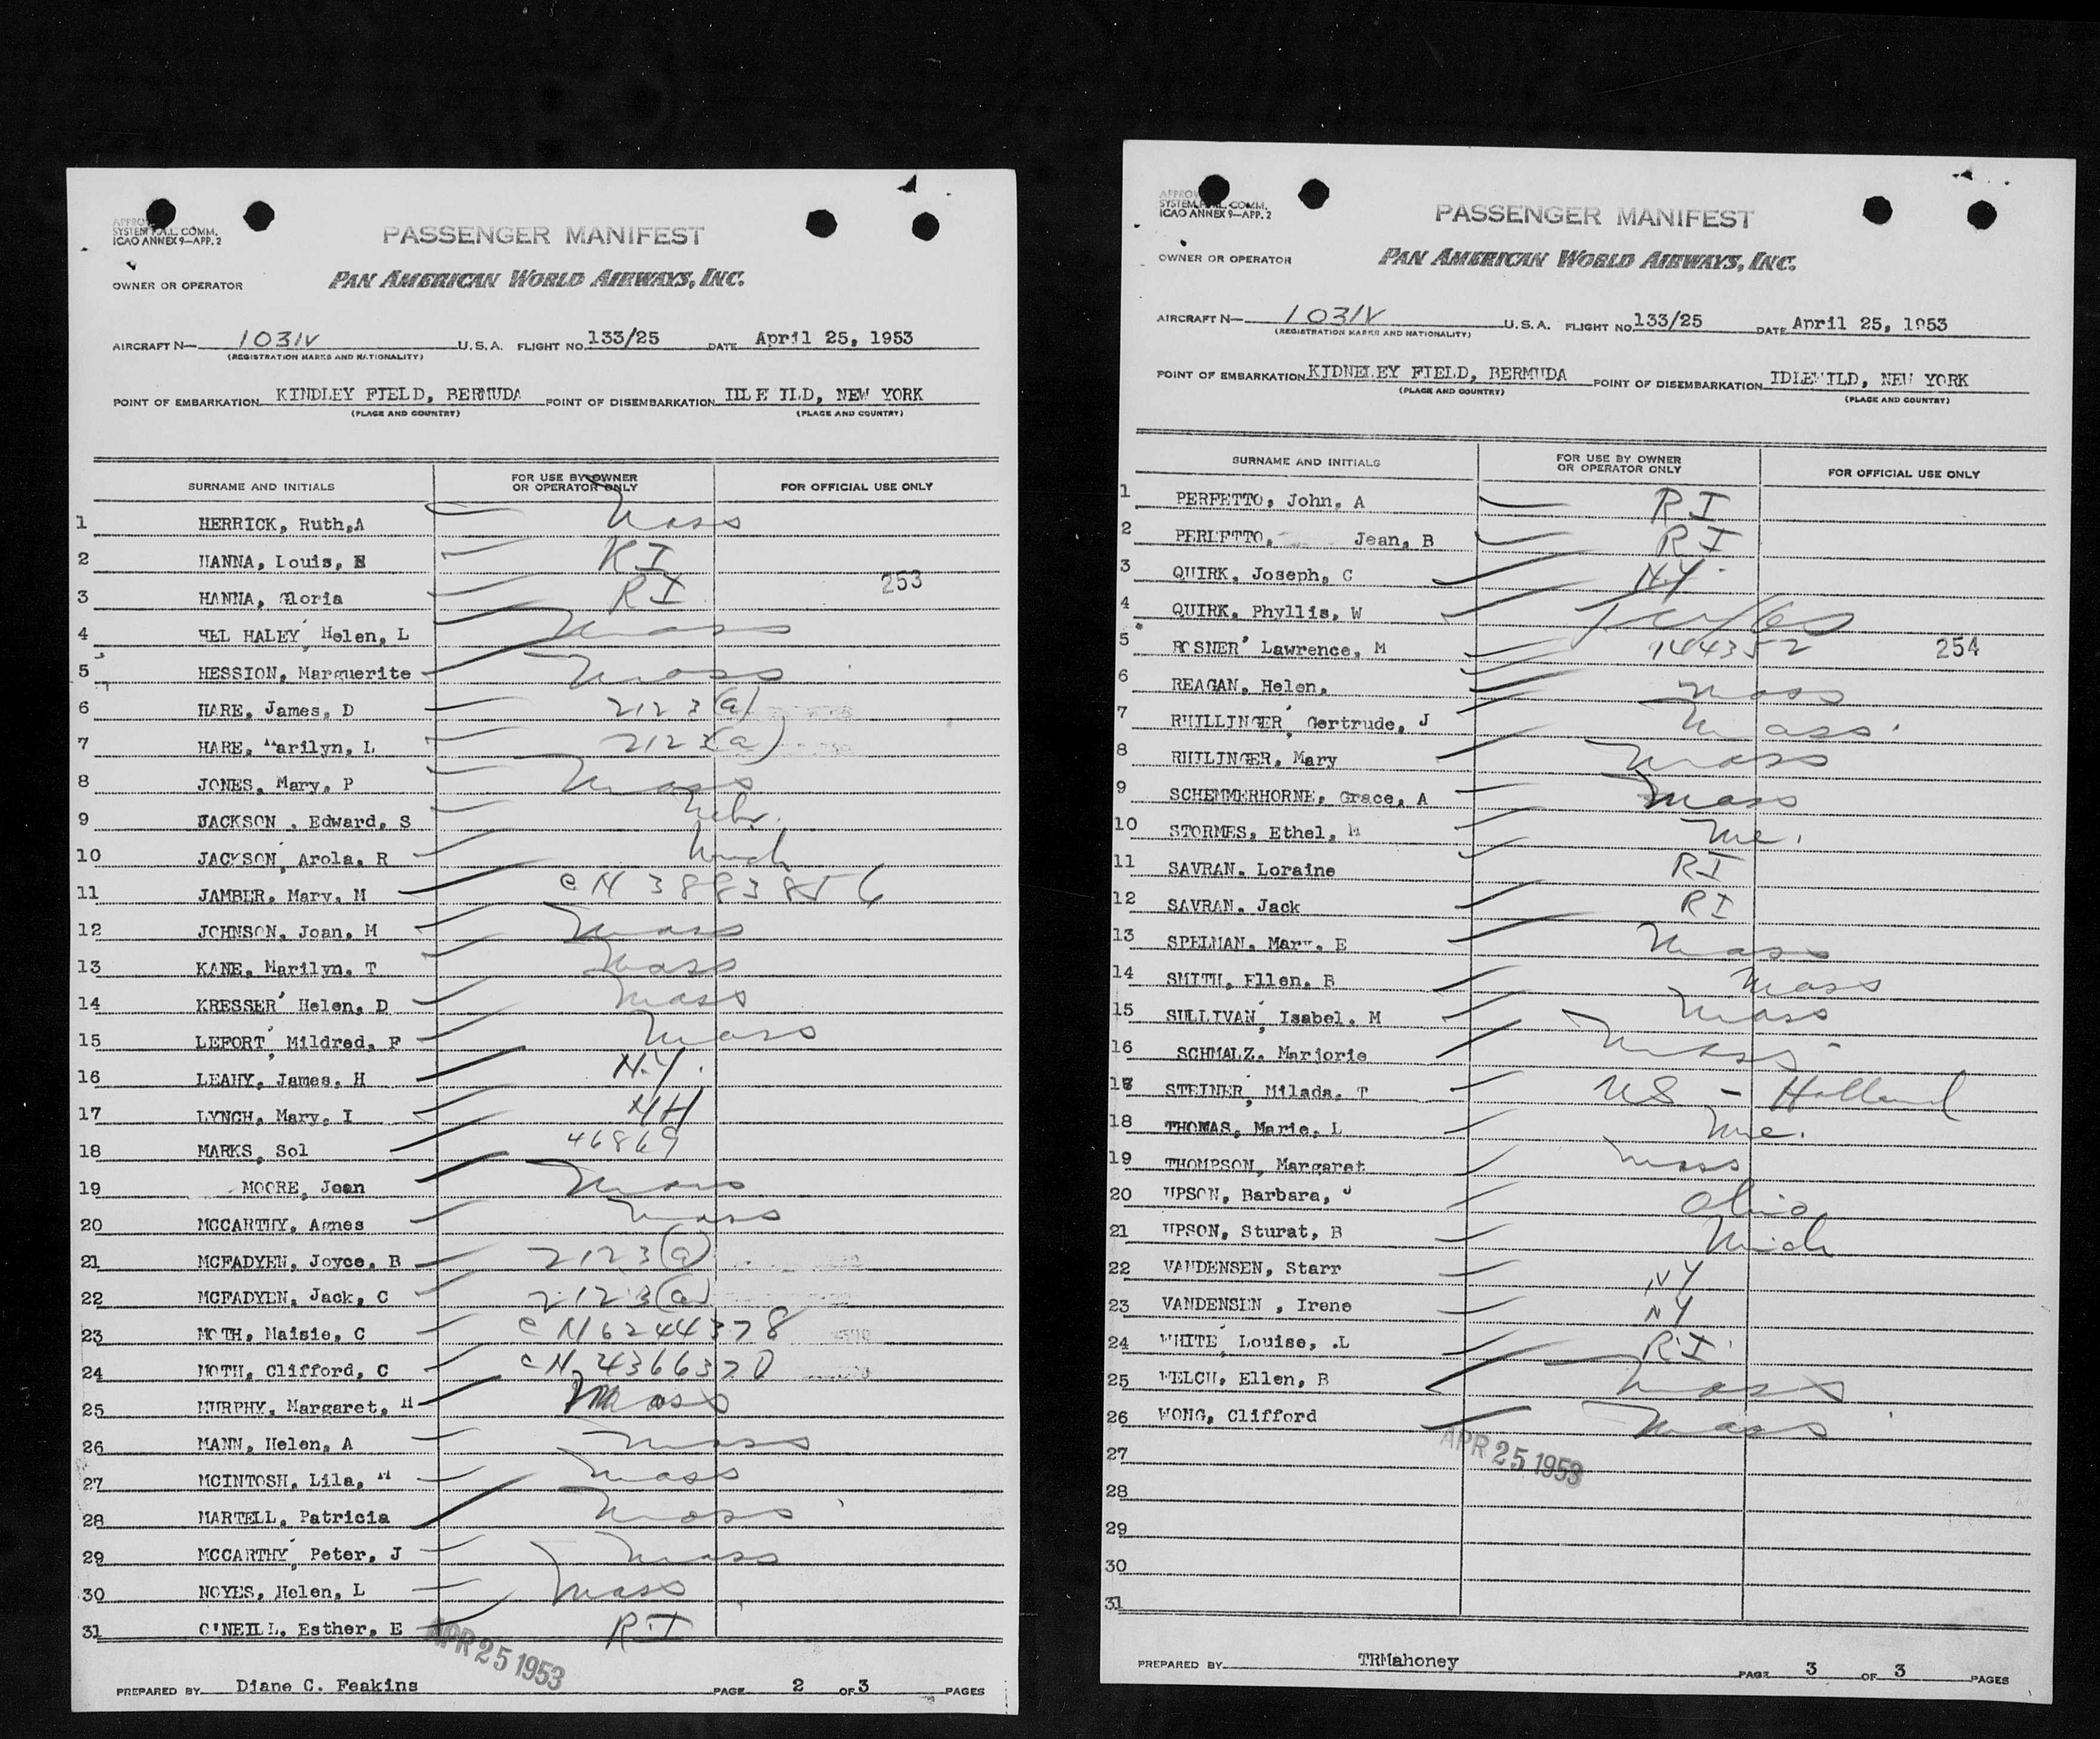 SYSTEM F.A.L. COMM.
ICAO ANNEX 9—APP. 2
PASSENGER MANIFEST
OWNER OR OPERATOR PAN AMERICAN WORLD AIRWAYS, INC.
AIRCRAFT N— 1031V U.S.A. FLIGHT NO. 133/25 DATE April 25, 1953
(REGISTRATION MARKS AND NATIONALITY)
POINT OF EMBARKATION KINDLEY FIELD, BERMUDA POINT OF DISEMBARKATION NEW YORK
(PLACE AND COUNTRY) (PLACE AND COUNTRY)
SURNAME AND INITIALS FOR USE BY OWNER OR OPERATOR ONLY FOR OFFICIAL USE ONLY
1 HERRICK, Ruth,A Mass
2 HANNA, Louis, E RI
253
3 HANNA, Gloria RI
4 HEL HALEY, Helen, L Mass
5 HESSION, Marguerite Mass
6 HARE, James, D 2123(a)
7 HARE, Marilyn, L 2123(a)
8 JONES, Mary, P Mass
9 JACKSON , Edward, S
10 JACKSON, Arola, R Mich
11 JAMBER, Mary, M CN 3883856
12 JOHNSON, Joan, M Mass
13 KANE, Marilyn, T Mass
14 KRESSER' Helen, D Mass
15 LEFORT, Mildred, F Mass
16 LEAHY, James, H N.Y.
17 LYNCH, Mary, I NH
18 MARKS, Sol 46869
19 MOORE, Jean Mass
20 MCCARTHY, Agnes Mass
21 MCFADYEN, Joyce, B 2123(a)
22 MCFADYEN, Jack, C 2123(a)
23 MOTH, Maisie, C CN 6244378
24 MOTH, Clifford, C CN 4366370
25 MURPHY, Margaret, M Mass
26 MANN, Helen, A Mass
27 MCINTOSH, Lila, M Mass
28 MARTELL, Patricia Mass
29 MCCARTHY, Peter, J Mass
30 NOYES, Helen, L Mass
31 O'NEILL, Esther, E RI
APR 25 1953
PREPARED BY Diane C. Feakins PAGE 2 OF 3 PAGES
SYSTEM F.A.L. COMM.
ICAO ANNEX 9—APP. 2
PASSENGER MANIFEST
OWNER OR OPERATOR PAN AMERICAN WORLD AIRWAYS, INC.
AIRCRAFT N— 1031V U.S.A. FLIGHT NO. 133/25 DATE April 25, 1953
(REGISTRATION MARKS AND NATIONALITY)
POINT OF EMBARKATION KIDNELEY FIELD, BERMUDA POINT OF DISEMBARKATION IDLEWILD, NEW YORK
(PLACE AND COUNTRY) (PLACE AND COUNTRY)
SURNAME AND INITIALS FOR USE BY OWNER OR OPERATOR ONLY FOR OFFICIAL USE ONLY
1 PERFETTO, John, A RI
2 PERLETTO, Jean, B RI
3 QUIRK, Joseph, C N.Y.
4 QUIRK, Phyllis, W
5 ROSNER' Lawrence, M 144352 254
6 REAGAN, Helen, Mass
7 RHILLINGER, Gertrude, J Mass
8 RHILINGER, Mary Mass
9 SCHEMMERHORNE, Grace, A Mass
10 STORMES, Ethel, M Me.
11 SAVRAN, Loraine RI
12 SAVRAN, Jack RI
13 SPELMAN, Mary, E Mass
14 SMITH, Ellen, B Mass
15 SULLIVAN, Isabel, M Mass
16 SCHMALZ, Marjorie Mass
17 STEINER, Milada, T US - Holland
18 THOMAS, Marie, L Me.
19 THOMPSON, Margaret Mass
20 UPSON, Barbara, J Ohio
21 UPSON, Sturat, B Mich
22 VANDENSEN, Starr NY
23 VANDENSEN , Irene NY
24 WHITE, Louise, .L RI
25 WELCH, Ellen, B Mass
26 WONG, Clifford Mass
APR 25 1953
27
28
29
30
31
PREPARED BY TRMahoney PAGE 3 OF 3 PAGES